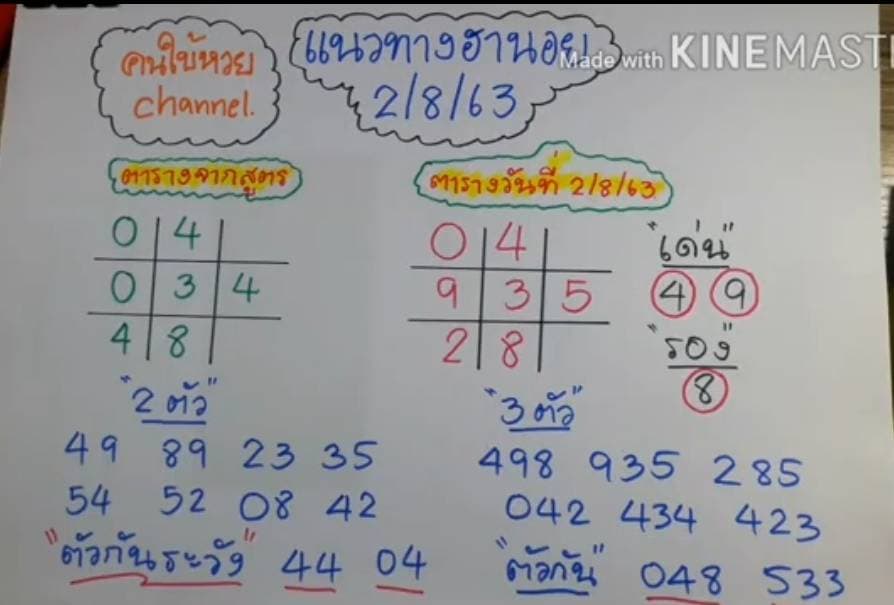 คนใบ้หวย
channel.
แนวทางฮานอย
2/8/63
Made with KINEMAST
ตารางจากสูตร
0 4
0 3 4
4 8
ตารางวันที่ 2/8/63
0 4
9 3 5
2 8
"เด่น"
4 9
"รอง"
8
"2 ตัว"
49 89 23 35
54 52 08 42
"ตัวกันระวัง" 44 04
"3 ตัว"
498 935 285
042 434 423
"ตัวกัน" 048 533